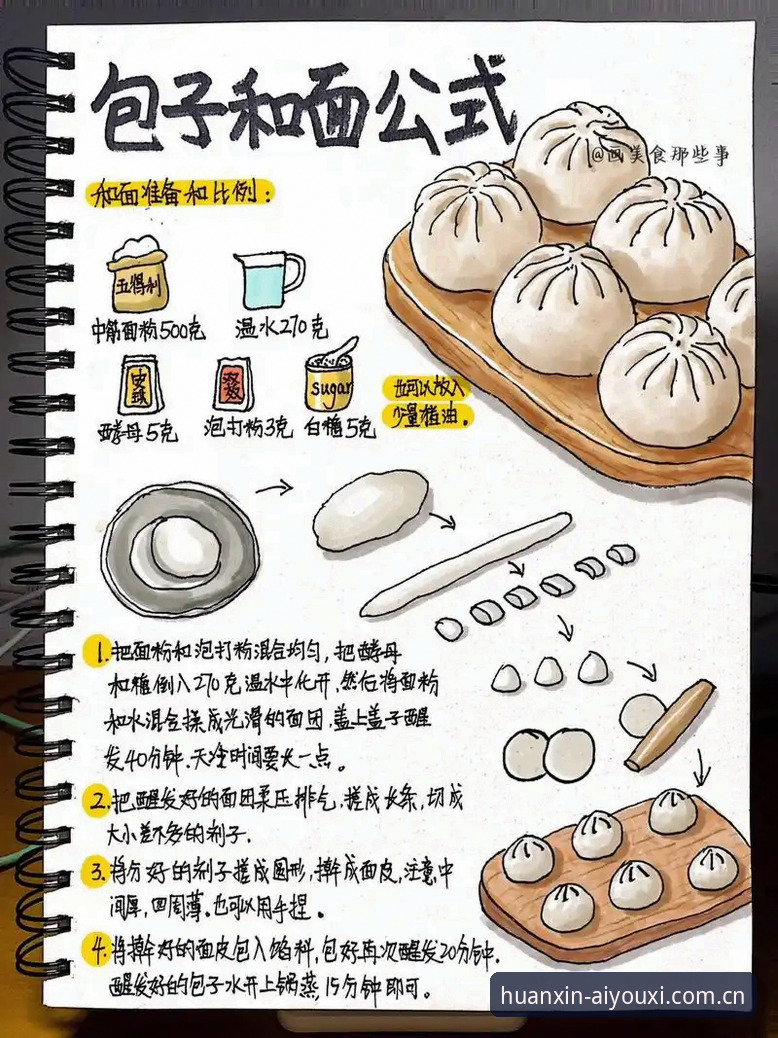 包子和面公式
@画美食那些事
和面准备和比例：
五得利
中筋面粉500克
温水270克
安琪
双效
sugar
酵母5克
泡打粉3克
白糖5克
也可以放入
少量猪油。
1.把面粉和泡打粉混合均匀,把酵母
和糖倒入270克温水中化开,然后将面粉
和水混合揉成光滑的面团,盖上盖子醒
发40分钟.天冷时间要长一点。
2.把醒发好的面团柔压排气,搓成长条,切成
大小差不多的剂子.
3.将分好的剂子搓成圆形,擀成面皮,注意,中
间厚,四周薄.也可以用手捏。
4.将擀好的面皮包入馅料,包好再次醒发20分钟.
醒发好的包子水开上锅蒸,15分钟即可。
huanxin-aiyouxi.com.cn